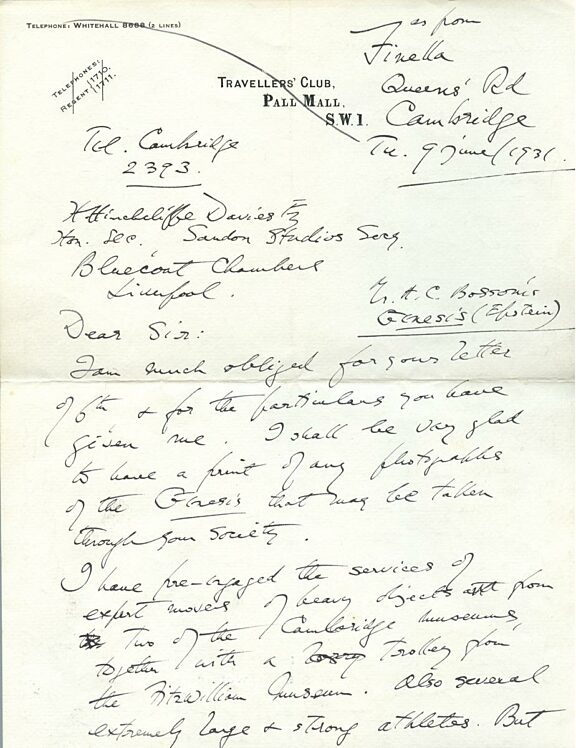 TELEPHONE: WHITEHALL 8688 (2 LINES)
TELEPHONES:
REGENT 1710.
1711.
TRAVELLERS' CLUB,
PALL MALL,
S.W.1.
as from
Finella
Queens' Rd
Cambridge
Tu. 9 June/1931.
Tel. Cambridge
2393.
H Hinchcliffe Davies Esq
Hon. Sec. Sandon Studios Socy.
Bluecoat Chambers
Liverpool.
A. C. Bossom's
Genesis (Epstein)
Dear Sir:
I am much obliged for your letter
of 6th & for the particulars you have
given me. I shall be very glad
to have a print of any photographs
of the Genesis that may be taken
through your Society.
I have pre-engaged the services of
expert movers of heavy objects from
Two of the Cambridge museums,
together with a trolley from
the Fitzwilliam Museum. Also several
extremely large & strong athletes. But